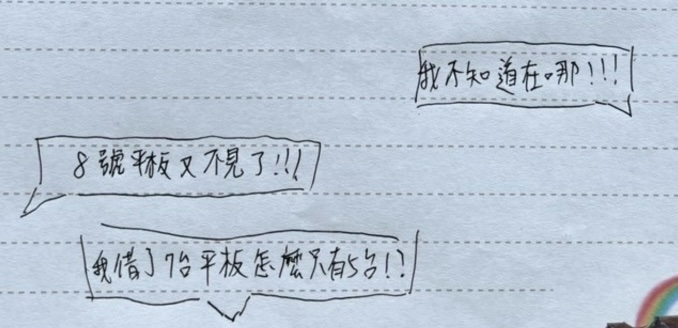 我不知道在哪!!!
8號平板又不見了!!!
我借了7台平板怎麼只有5台!?